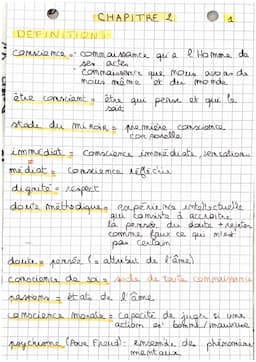 CHAPITRE 2
1
DEFINITIONS
conscience = connaissance qu'a l'Homme de
ses actes
connaissance que nous avons de
nous même et du monde
être conscient = être qui pense et qui le
sait
stade du miroir = première conscience
corporelle
immédiat = conscience immédiate, sensation
médiat = conscience réfléchie
dignité = respect
doute méthodique = expérience intellectuelle
qui consiste à accroître
la pensée du doute + rejeter
comme faux ce qui n'est
pas certain
doute = pensée (= attribut de l'âme)
conscience de soi = socle de toute connaissance
passions = états de l'âme
conscience morale = capacité de juger si une
action est bonne / mauvaise
psychisme (Pour Freud) = ensemble des phénomènes
mentaux